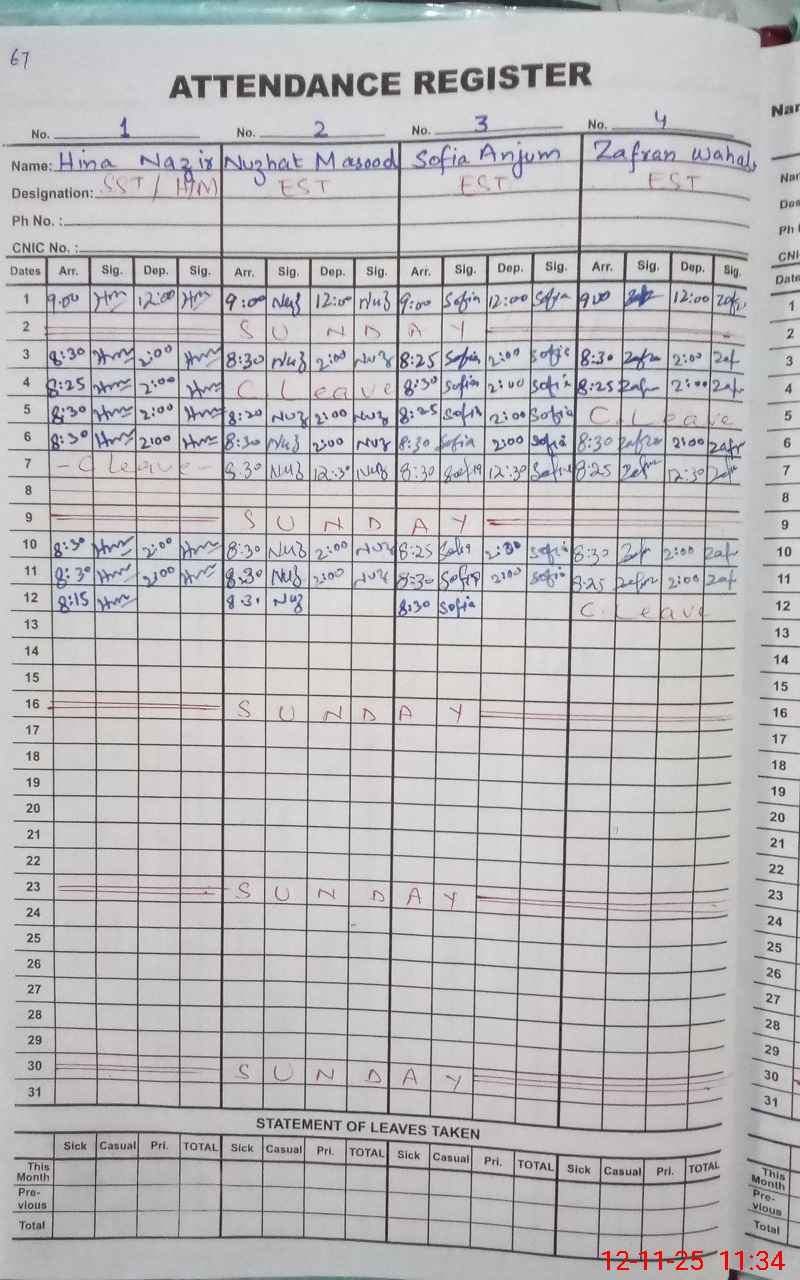 67
ATTENDANCE REGISTER
No. 1 No. 2 No. 3 No. 4
Name: Hina Nazir Nuzhat Masood Sofia Anjum Zafran Wahab
Designation: SST / H/M EST EST EST
Ph No. :
CNIC No. :
Dates Arr. Sig. Dep. Sig. Arr. Sig. Dep. Sig. Arr. Sig. Dep. Sig. Arr. Sig. Dep. Sig.
1 9:00 Hm 12:00 Hm 9:00 Nuz 12:00 Nuz 9:00 Sofia 12:00 Sofia 9:00 12:00 Zafr
2 S U N D A Y
3 8:30 Hm 2:00 Hm 8:30 Nuz 2:00 Nuz 8:25 Sofia 2:00 Sofia 8:30 Zafr 2:00 Zaf
4 8:25 Hm 2:00 Hm C Leave 8:30 Sofia 2:00 Sofia 8:25 Zafr 2:00 Zaf
5 8:30 Hm 2:00 Hm 8:20 Nuz 2:00 Nuz 8:25 Sofia 2:00 Sofia C. Leave
6 8:30 Hm 2:00 Hm 8:30 Nuz 2:00 Nuz 8:30 Sofia 2:00 Sofia 8:30 Zafr 2:00 Zafr
7 - C Leave - 8:30 Nuz 12:30 Nuz 8:30 Sofia 12:30 Sofia 8:25 Zafr 12:30 Zaf
8
9 S U N D A Y
10 8:30 Hm 2:00 Hm 8:30 Nuz 2:00 Nuz 8:25 Sofia 2:00 Sofia 8:30 Zaf 2:00 Zafr
11 8:30 Hm 2:00 Hm 8:30 Nuz 2:00 Nuz 8:30 Sofia 2:00 Sofia 8:25 Zafr 2:00 Zaf
12 8:15 Hm 8:30 Nuz 8:30 Sofia C. Leave
13
14
15
16 S U N D A Y
17
18
19
20
21
22
23 S U N D A Y
24
25
26
27
28
29
30 S U N D A Y
31
STATEMENT OF LEAVES TAKEN
Sick Casual Pri. TOTAL Sick Casual Pri. TOTAL Sick Casual Pri. TOTAL Sick Casual Pri. TOTAL
This
Month
Pre-
vious
Total
Nar
Nar
Des
Ph
CNI
Date
1
2
3
4
5
6
7
8
9
10
11
12
13
14
15
16
17
18
19
20
21
22
23
24
25
26
27
28
29
30
31
This
Month
Pre-
vious
Total
12-11-25 11:34